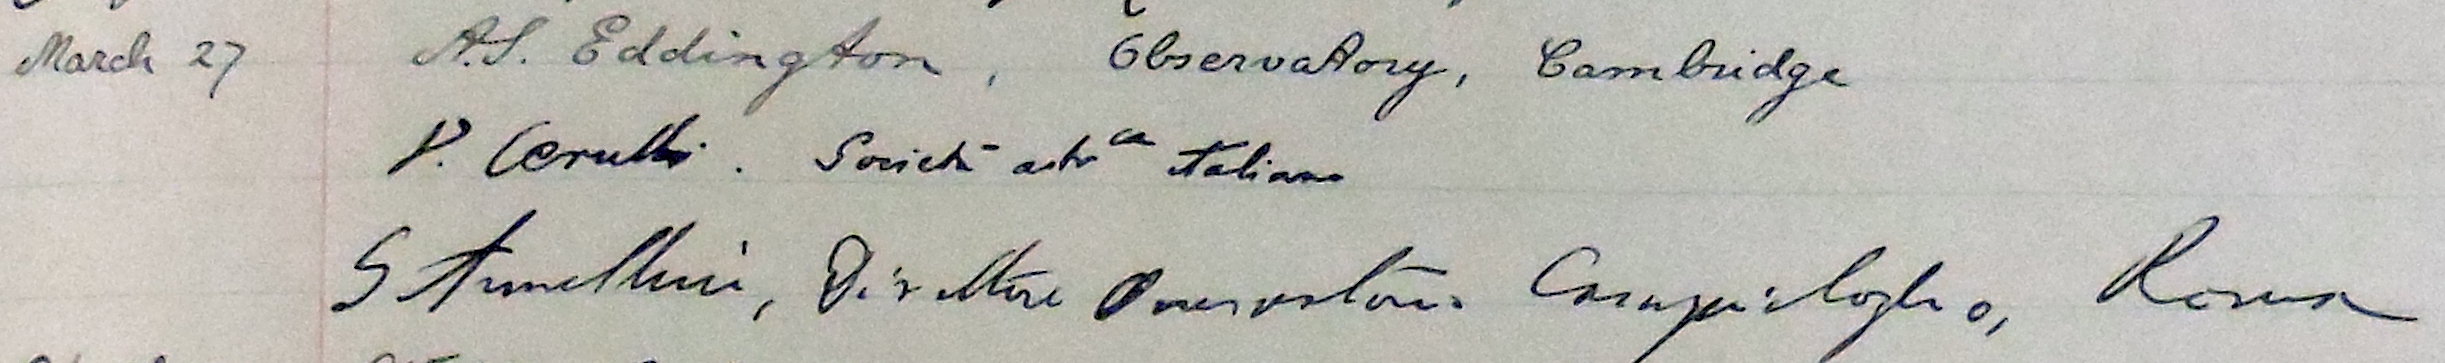 March 27 A.S. Eddington, Observatory, Cambridge
V. Cerulli. Società astr ca italiana
G Armellini, Direttore Osservatorio Campidoglio, Roma